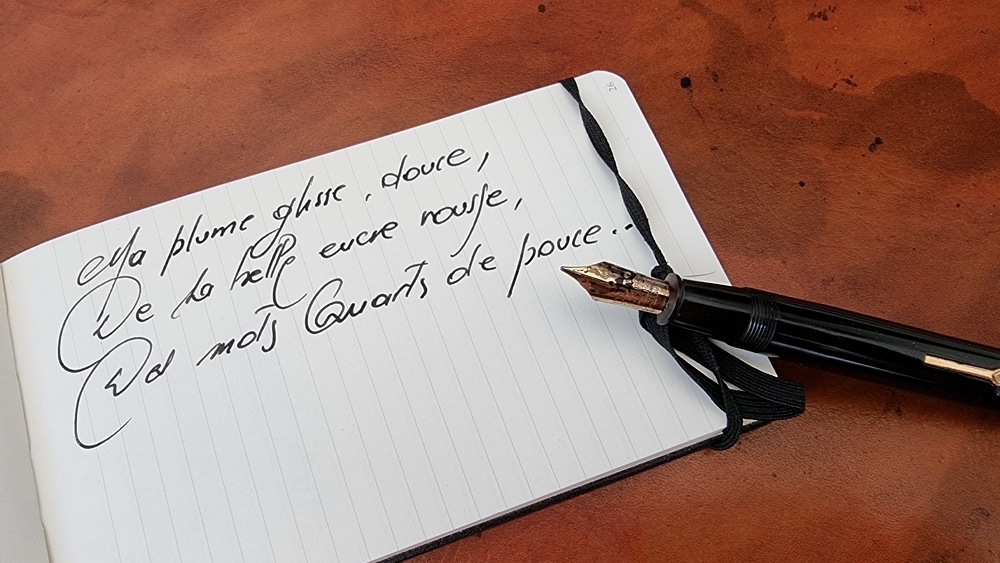 Ma plume glisse, douce,
De la belle encre rousse,
Des mots Quarts de pouce...
26